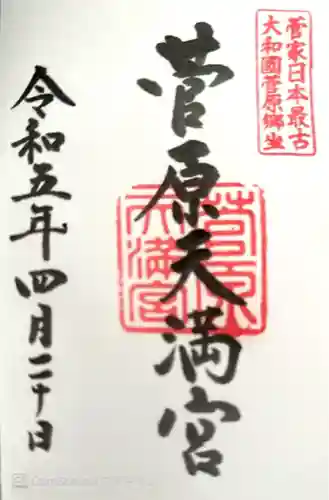 菅家日本最古
大和國菅原鄉坐
菅原天満宮
菅原
天満宮
令和五年四月二十日
CamScanner